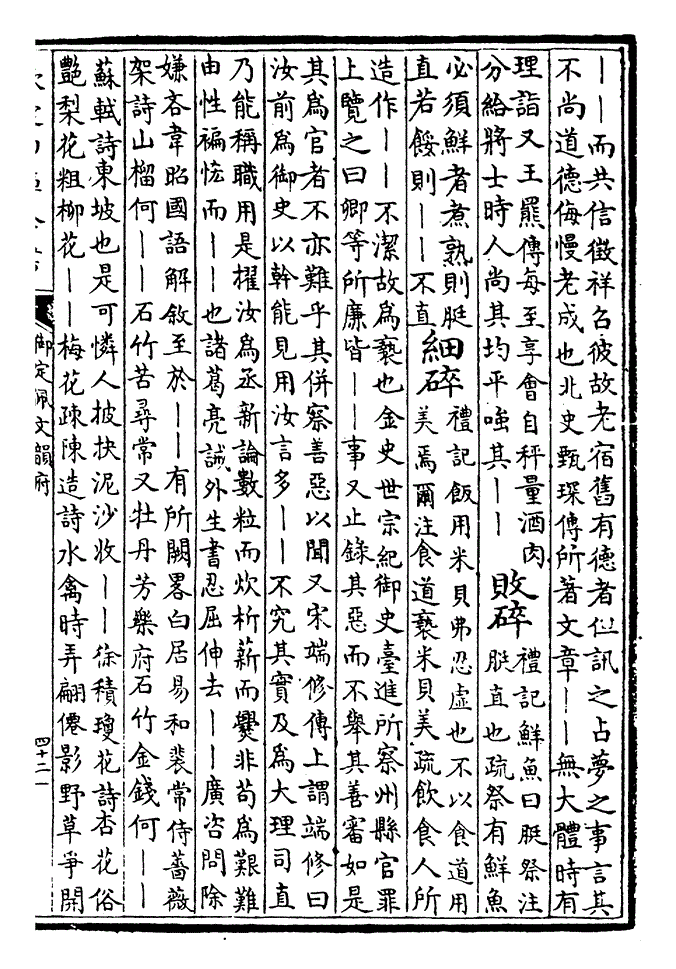 ｜｜而共信徵祥召彼故老宿舊有德者但訊之占夢之事言其
不尚道德侮慢老成也北史甄琛傳所著文章｜｜無大體時有
理詣又王羆傳每至享會自秤量酒肉
分給將士時人尚其均平嗤其｜｜
敗碎
禮記鮮魚曰脡祭注
脡直也疏祭有鮮魚
必須鮮者煮熟則脡
直若餒則｜｜不直
細碎
禮記飯用米貝弗忍虛也不以食道用
美焉爾注食道褻米貝美疏飲食人所
造作｜｜不潔故爲褻也金史世宗紀御史臺進所察州縣官罪
上覽之曰卿等所廉皆｜｜事又止錄其惡而不舉其善審如是
其爲官者不亦難乎其併察善惡以聞又宋端修傳上謂端修曰
汝前爲御史以幹能見用汝言多｜｜不究其實及爲大理司直
乃能稱職用是擢汝爲丞新論數粒而炊析薪而爨非苟爲艱難
由性褊恡而｜｜也諸葛亮誡外生書忍屈伸去｜｜廣咨問除
嫌吝韋昭國語解敘至於｜｜有所闕畧白居易和裴常侍薔薇
架詩山榴何｜｜石竹苦尋常又牡丹芳樂府石竹金錢何｜｜
蘇軾詩東坡也是可憐人披抉泥沙收｜｜徐積瓊花詩杏花俗
艷梨花粗柳花｜｜梅花疎陳造詩水禽時弄翩僊影野草爭開
御定佩文韻府
四十二